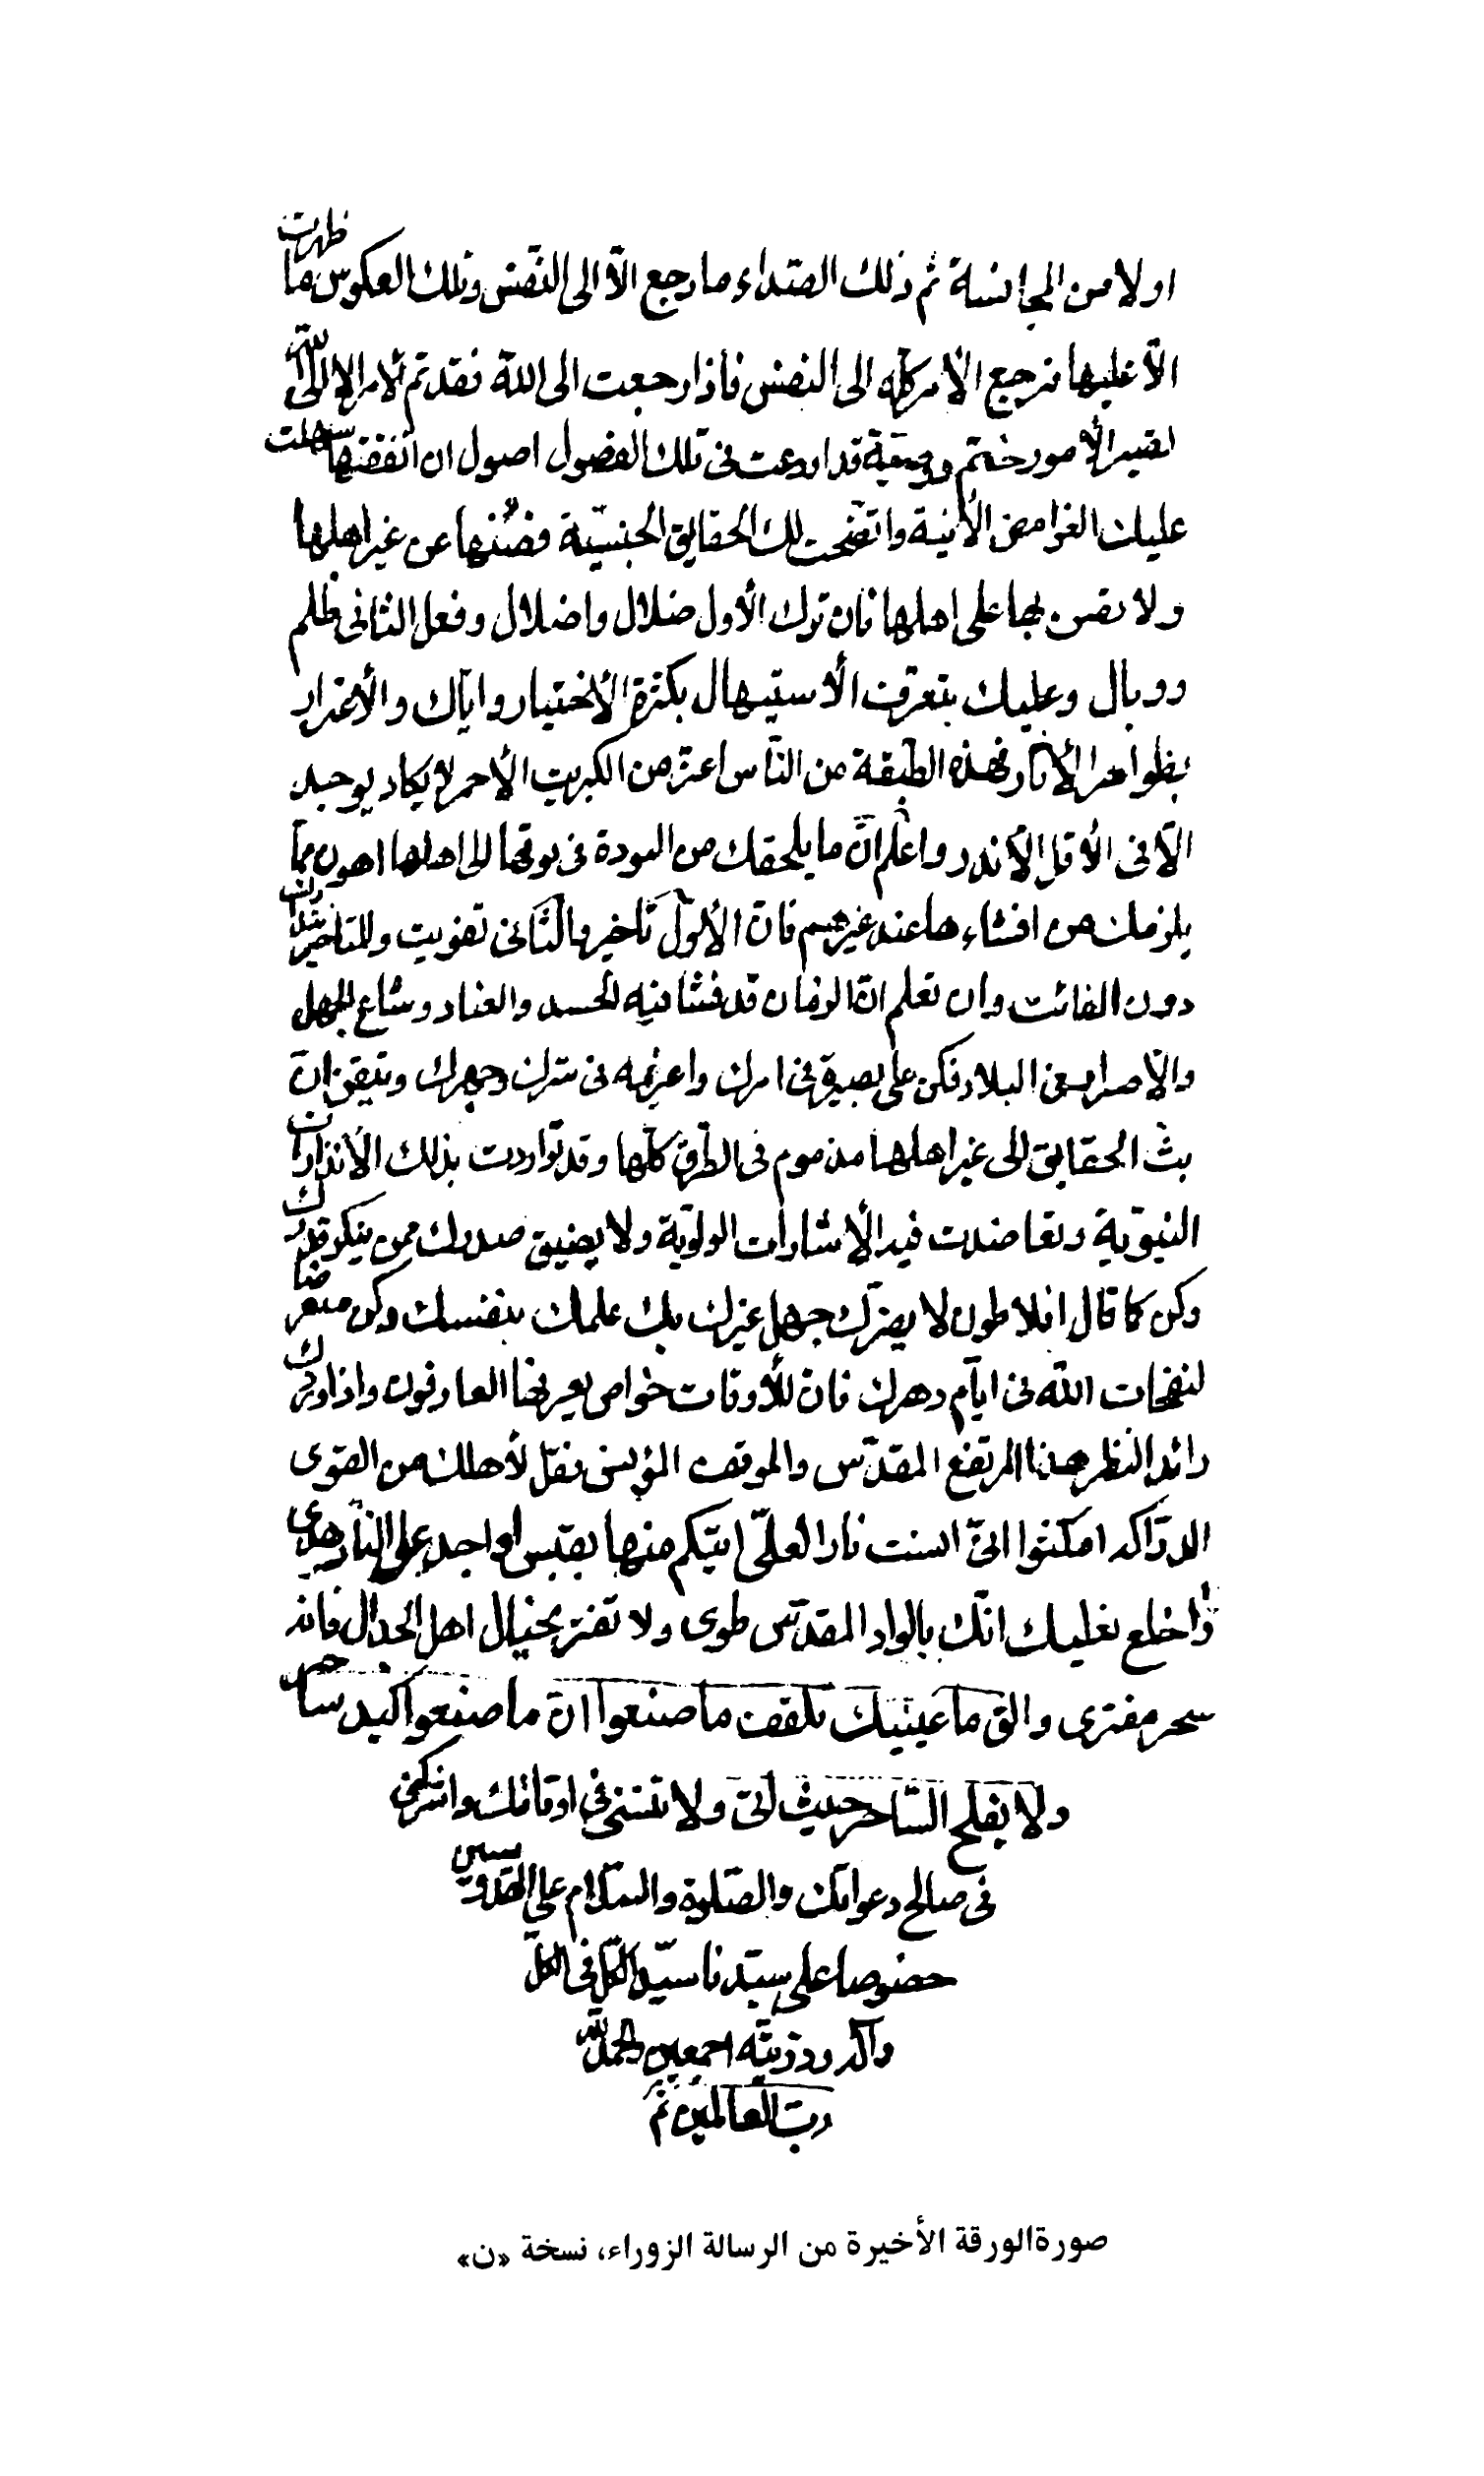 اولا من المجانسة ثم ذلك الصّداء ما رجع الّا الى النّفس وتلك العكوس ما ظهرت
الّا عليها فرجع الأمر كله الى النفس فاذا رجعت الى اللّه فقد تم الأمر الا الى اللّه
تصير الأمور ختم ووصيّة قد اودعت فى تلك الفصول اصول ان اتقنتها سهلت
عليك الغوامض الأبيّة واتضحت لك الحقايق الخبيّة فصُنها عن غير اهلها
ولا تضن بها على اهلها فان ترك الأول ضلال واضلال وفعل الثانى ظلم
ووبال وعليك بتعرّف الأستيهال بكثرة الأختيار واياك والأغترار
بظواهر الأثار فهذه الطبقة من النّاس اعزّ من الكبريت الأحمر لا يكاد يوجد
الّا فى الأقل الأندر واعلم انّ ما يلحقك من فى توقّها الى اهلها اهون ممّا
يلزمك من افشاءها عند غيرهم فانّ الأول تأخير والثّانى تفويت وللتاخير تدارك
دون الفائت وان تعلم انّ الزمان قد فشا فيه الحسد والعناد وشاع الجهل
والأصرار فى البلاد فكن على بصيرة فى امرك واعزمه فى سّرك وجهرك وتيقن انّ
بثّ الحقايق الى غير اهلها مذموم فى الطّرق كلّها وقد تواردت بذلك الأنذارات
النبّوية وتعاضدت فيه الأشارات الولويّة ولا يضيق صدرك ممن ينكر قدرك
وكن كما قال افلاطون لا يضرّك جهل غيرك بك علمك بنفسك وكن متعرضا
لنفحات اللّه فى ايّام دهرك فانّ للأوقات خواص يعرفها العارفون واذا ورد
رائد النظر هذا المرتفع المقدّس والموقف المؤنس فقل لأهلك من القوى
الدرّاكه امكثوا انىّ آنست نارا لعلّى اتيكم منها بقبس او اجد على النار هدى
واخلع نعليك انّك بالواد المقدّس طوى ولا تغتر بخيال اهل الجدال فانه
سحر مفترى والق ما عينيك تلقف ما صنعوا انّ ما صنعوا كيد ساحر
ولا يفلح السّاحر حيث اتى ولا تنسنى فى اوقاتك واشركنى
فى صالح دعواتك والصّلوة والسّلام على القدّوسين
خصوصا على سيّدنا سيّد الكلّ فى الكلّ
وآله وذريّته اجمعين والحمد للّه
ربّ العالمين تمّ
صورةالورقة الأخيرة من الرسالة الزوراء، نسخة «ن»